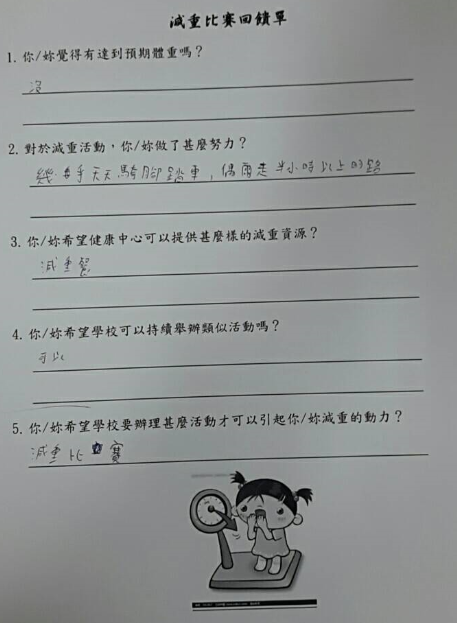 減重比賽回饋單
1. 你/妳覺得有達到預期體重嗎？
沒
2. 對於減重活動，你/妳做了甚麼努力？
幾乎天天騎腳踏車，偶爾走半小時以上的路
3. 你/妳希望健康中心可以提供甚麼樣的減重資源？
減重餐
4. 你/妳希望學校可以持續舉辦類似活動嗎？
可以
5. 你/妳希望學校要辦理甚麼活動才可以引起你/妳減重的動力？
減重比賽